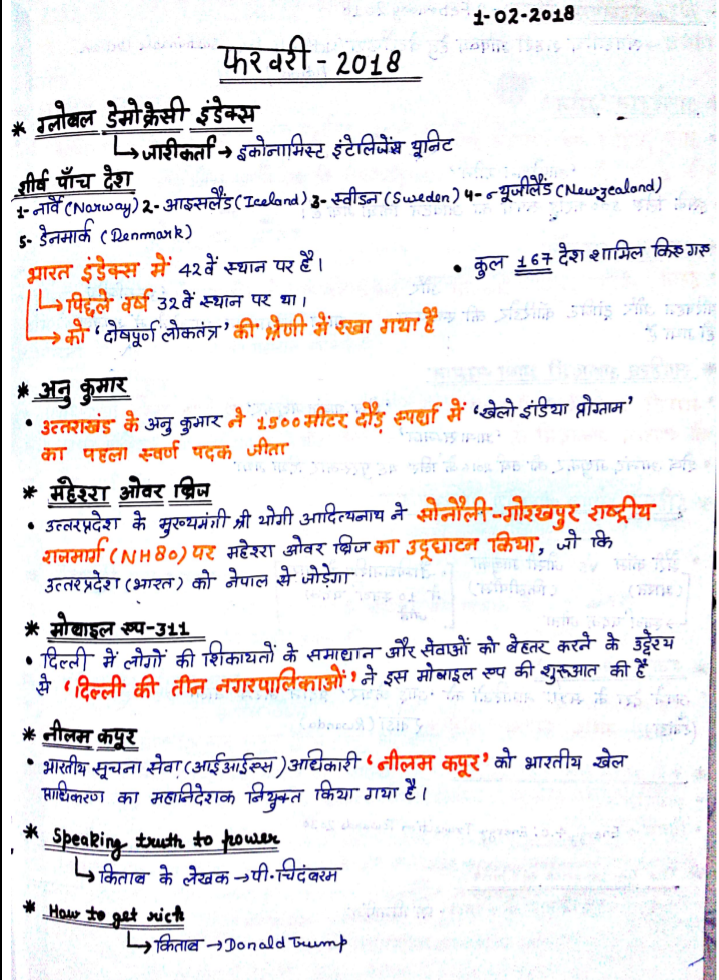 1-02-2018
फरवरी - 2018
* ग्लोबल डेमोक्रेसी इंडेक्स
↳ जारीकर्ता → इकोनामिस्ट इंटेलिजेंस यूनिट
शीर्ष पाँच देश
1- नार्वे (Norway) 2- आइसलैंड (Iceland) 3- स्वीडन (Sweden) 4- न्यूजीलैंड (Newzealand)
5- डेनमार्क (Denmark)
भारत इंडेक्स में 42वें स्थान पर है।
• कुल 167 देश शामिल किए गए
↳ पिछले वर्ष 32वें स्थान पर था।
↳ को 'दोषपूर्ण लोकतंत्र' की श्रेणी में रखा गया है
* अनु कुमार
• उत्तराखंड के अनु कुमार ने 1500मीटर दौड़ स्पर्धा में 'खेलो इंडिया प्रोग्राम'
का पहला स्वर्ण पदक जीता
* महेशरा ओवर ब्रिज
• उत्तरप्रदेश के मुख्यमंत्री श्री योगी आदित्यनाथ ने सोनौली-गोरखपुर राष्ट्रीय
राजमार्ग (NH80) पर महेशरा ओवर ब्रिज का उद्घाटन किया, जो कि
उत्तरप्रदेश (भारत) को नेपाल से जोड़ेगा
* मोबाइल एप-311
• दिल्ली में लोगों की शिकायतों के समाधान और सेवाओं को बेहतर करने के उद्देश्य
से 'दिल्ली की तीन नगरपालिकाओं' ने इस मोबाइल एप की शुरूआत की है
* नीलम कपूर
• भारतीय सूचना सेवा (आईआईएस) अधिकारी 'नीलम कपूर' को भारतीय खेल
प्राधिकरण का महानिदेशक नियुक्त किया गया है।
* Speaking truth to power
↳ किताब के लेखक → पी. चिदंबरम
* How to get rich
↳ किताब → Donald Trump